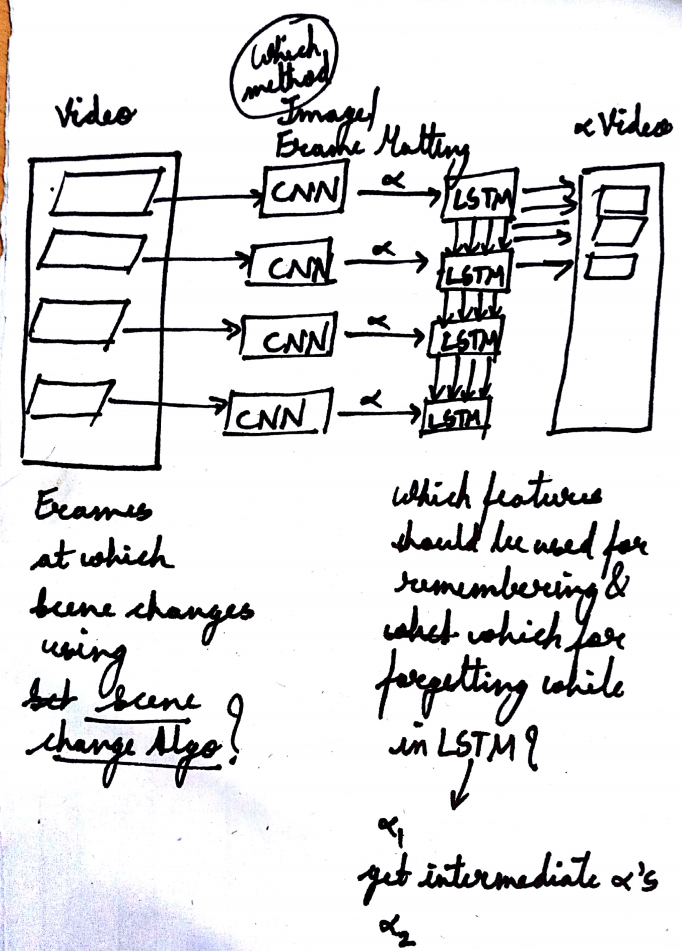 Which
method
Image/
Frame Matting
Video
α Video
CNN
α
LSTM
CNN
α
LSTM
CNN
α
LSTM
CNN
α
LSTM
Frames
at which
scene changes
using
scene
change Algo?
which features
should be used for
remembering &
which for
forgetting while
in LSTM?
α1
get intermediate α's
α2